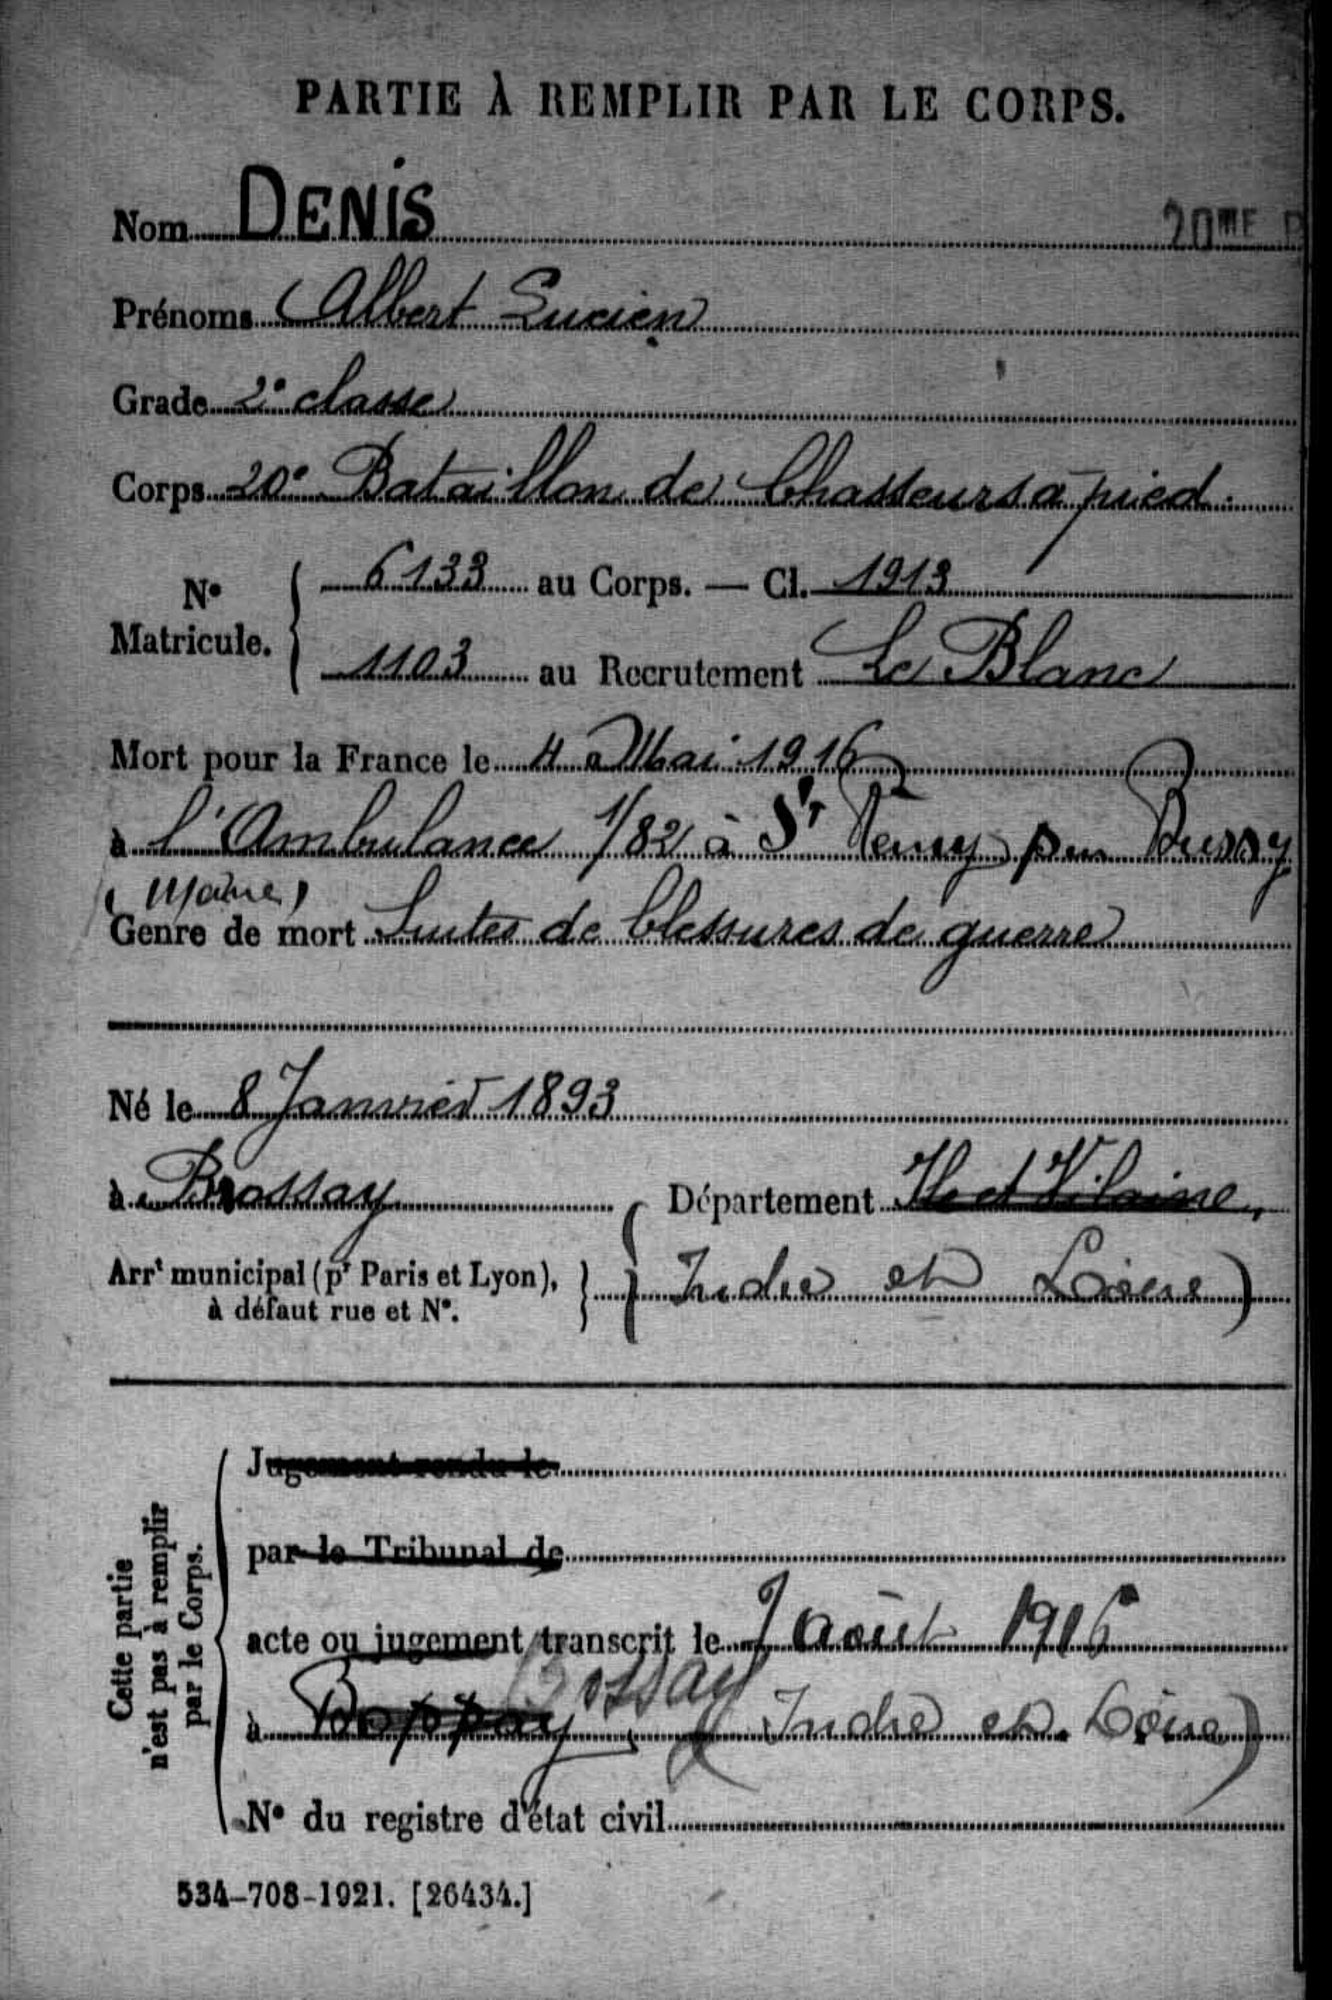 PARTIE À REMPLIR PAR LE CORPS.
Nom DENIS
20ME
Prénoms Albert Lucien
Grade 2e classe
Corps 20e Bataillon de Chasseurs à pied.
No Matricule. 6133 au Corps. — Cl. 1913
1103 au Recrutement Le Blanc
Mort pour la France le 4 Mai 1916
à l'Ambulance 1/82 à St Remy sur Bussy
(Marne)
Genre de mort Suites de blessures de guerre
Né le 8 Janvier 1893
à Brossay Département Ille et Vilaine,
Arrt municipal (pr Paris et Lyon), à défaut rue et No. (Indre et Loire)
Cette partie n'est pas à remplir par le Corps.
Jugement rendu le
par le Tribunal de
acte ou jugement transcrit le 7 août 1916
à Bossay (Indre et Loire)
No du registre d'état civil
534-708-1921. [26434.]